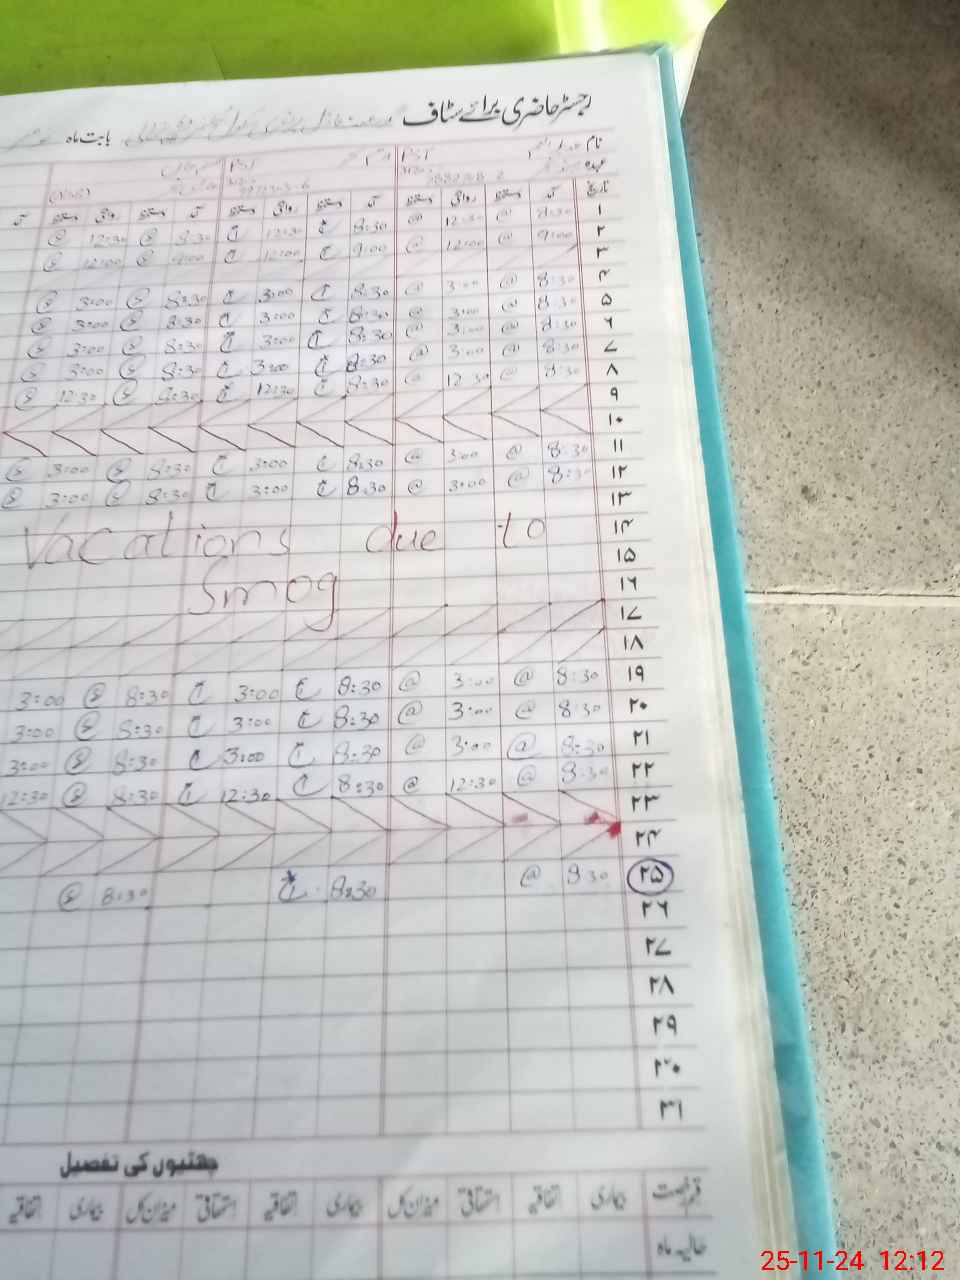 رجسٹر حاضری برائے سٹاف بابت ماہ
نام PST
عہدہ
تاریخ آمد دستخط روانگی دستخط آمد دستخط روانگی دستخط آمد دستخط روانگی دستخط آمد
۱ 8:30 @ 12:30 @ 8:30 12:30 8:30 12:30
۲ 9:00 @ 12:00 @ 9:00 12:00 9:00 12:00
۳
۴ 8:30 @ 3:00 @ 8:30 3:00 8:30 3:00
۵ 8:30 @ 3:00 @ 8:30 3:00 8:30 3:00
۶ 8:30 @ 3:00 @ 8:30 3:00 8:30 3:00
۷ 8:30 @ 3:00 @ 8:30 3:00 8:30 3:00
۸ 8:30 @ 12:30 @ 8:30 12:30 8:30 12:30
۹
۱۰
۱۱ 8:30 @ 3:00 @ 8:30 3:00 8:30 3:00
۱۲ 8:30 @ 3:00 @ 8:30 3:00 8:30 3:00
۱۳
Vacations due to
۱۴
۱۵
Smog
۱۶
۱۷
۱۸
۱۹ 8:30 @ 3:00 @ 8:30 3:00 8:30 3:00
۲۰ 8:30 @ 3:00 @ 8:30 3:00 8:30 3:00
۲۱ 8:30 @ 3:00 @ 8:30 3:00 8:30 3:00
۲۲ 8:30 @ 12:30 @ 8:30 12:30 8:30 12:30
۲۳
۲۴
۲۵ 8:30 @ 8:30 8:30
۲۶
۲۷
۲۸
۲۹
۳۰
۳۱
چھٹیوں کی تفصیل
قسم رخصت بیماری اتفاقیہ استحقاقی میزان کل بیماری اتفاقیہ استحقاقی میزان کل بیماری اتفاقیہ
حالیہ ماہ
25-11-24 12:12